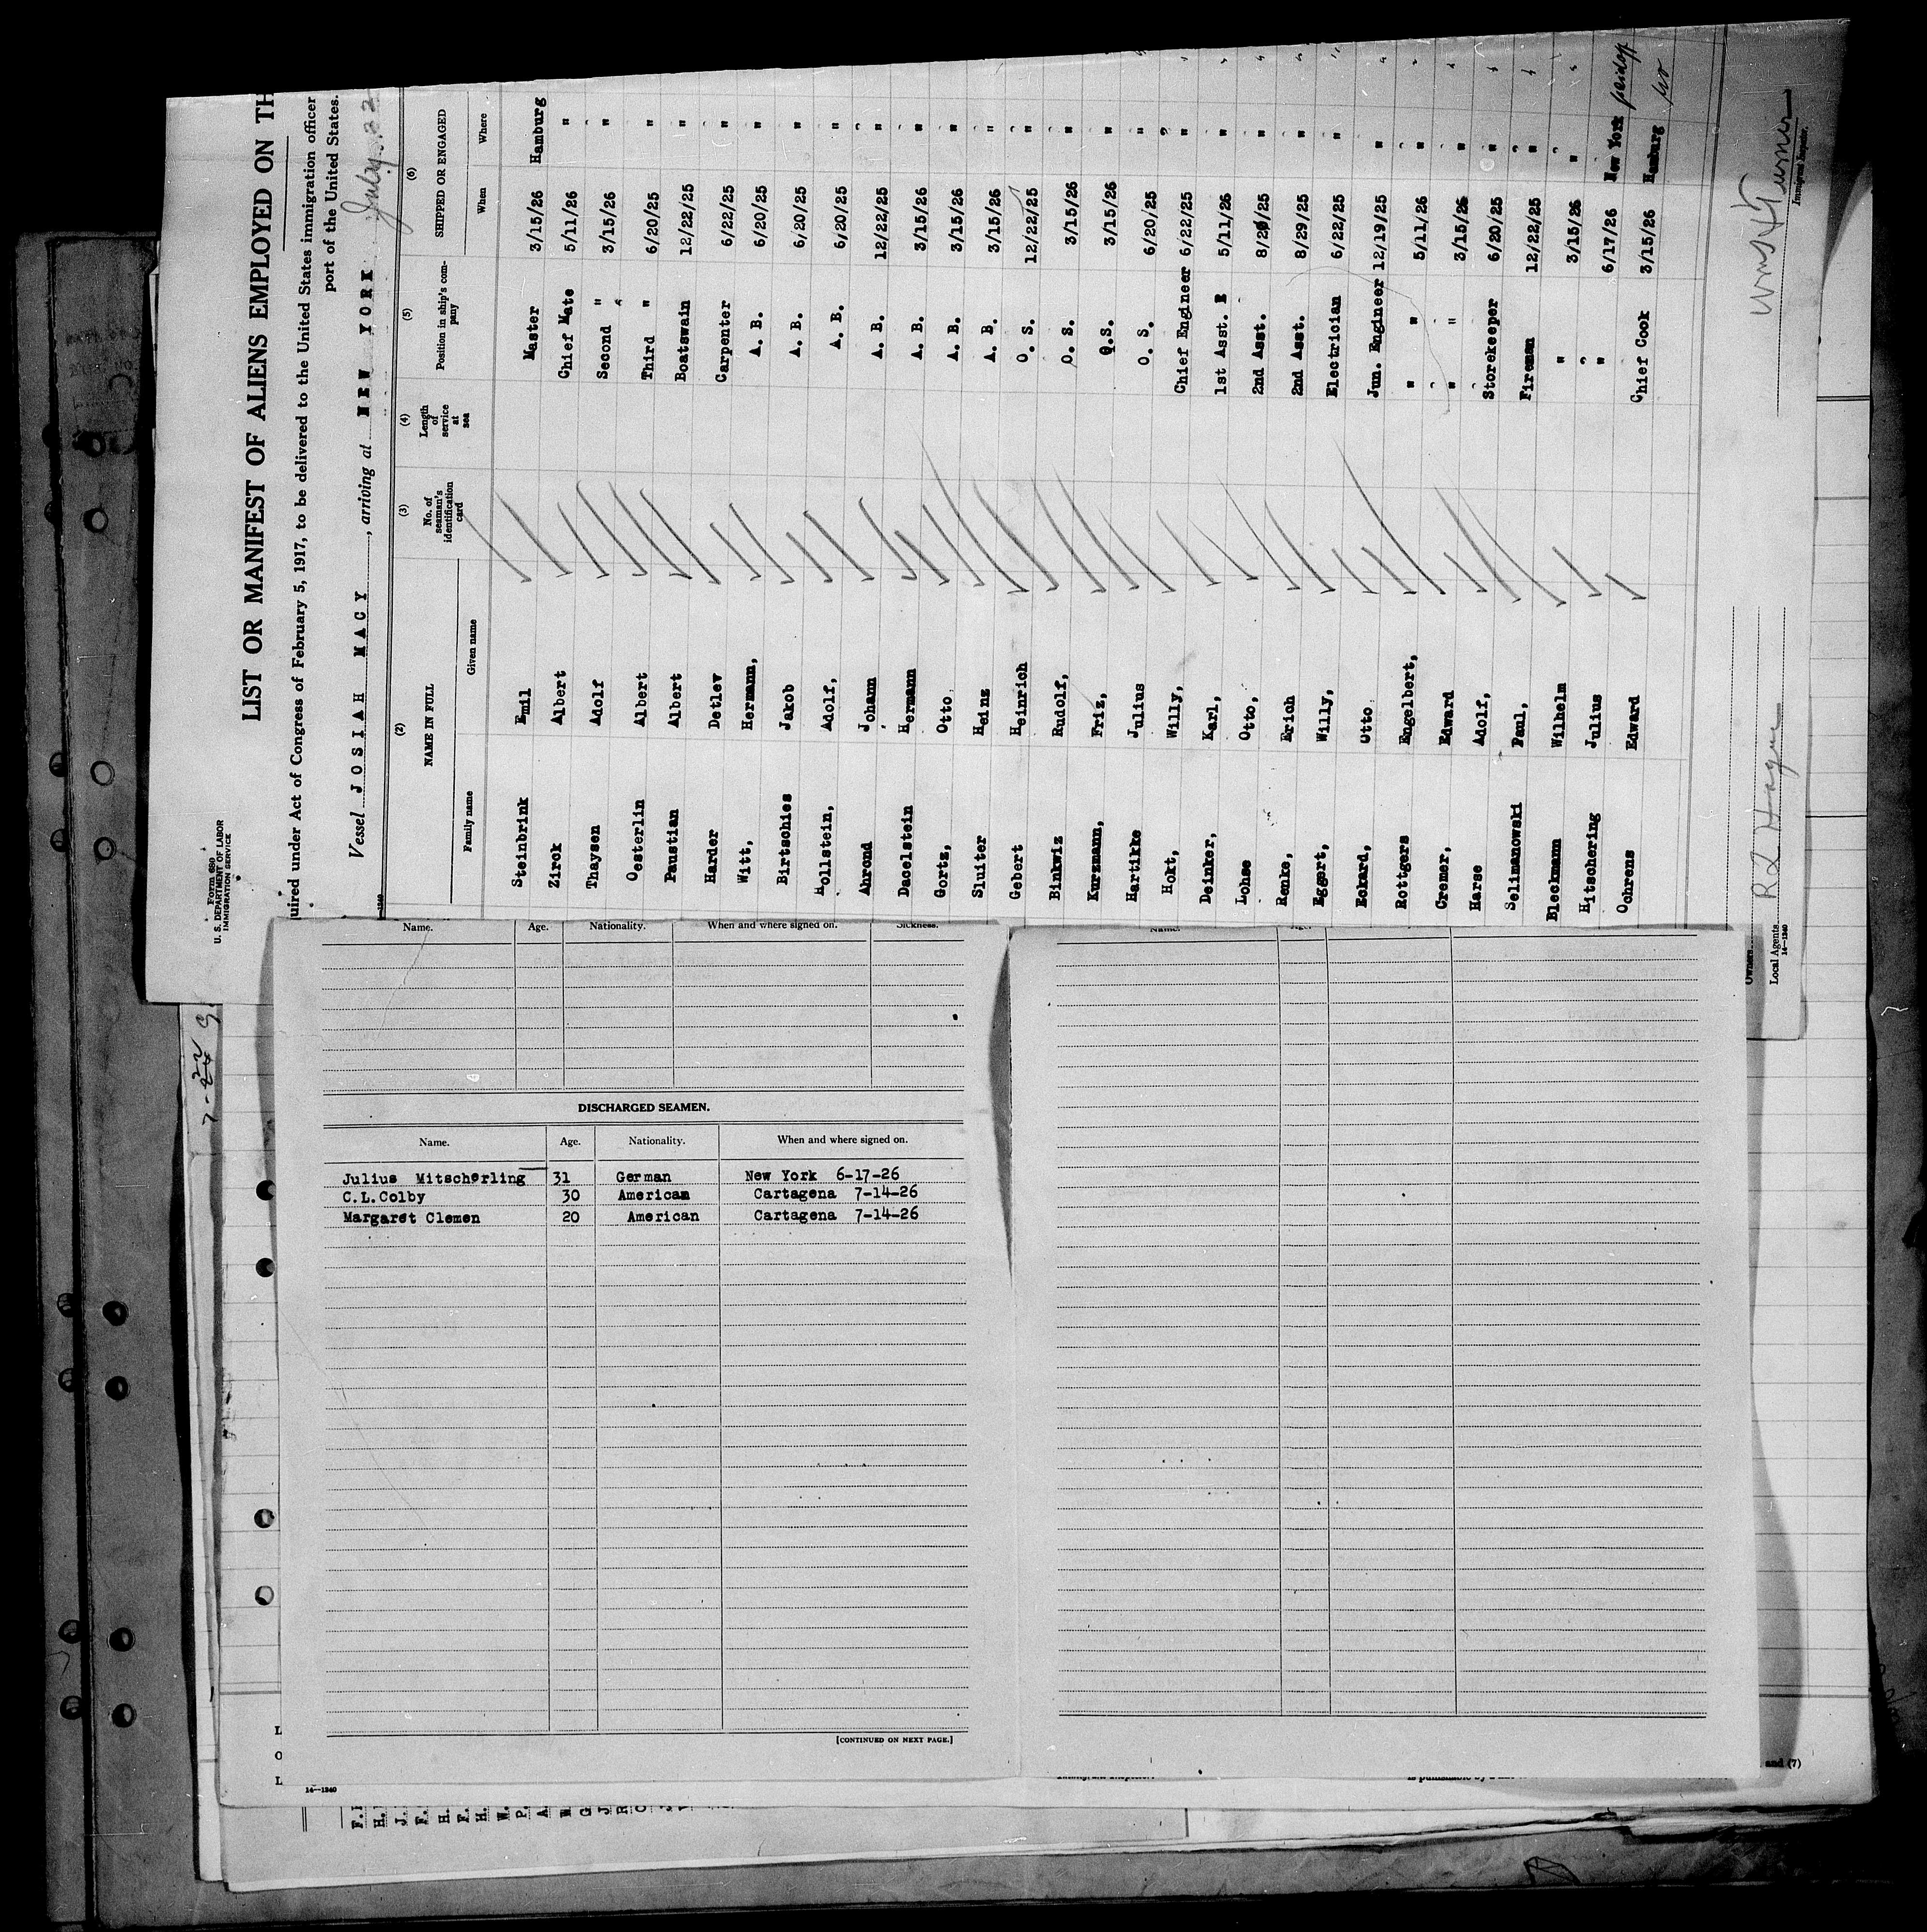 Form 689
U. S. DEPARTMENT OF LABOR
IMMIGRATION SERVICE
LIST OR MANIFEST OF ALIENS EMPLOYED ON TH
uired under Act of Congress of February 5, 1917, to be delivered to the United States immigration officer
port of the United States.
Vessel JOSIAH MACY, arriving at NEW YORK July 22
(2) (3) (4) (5) (6)
NAME IN FULL No. of seaman's identification card Length of service at sea Position in ship's company SHIPPED OR ENGAGED
Family name Given name When Where
Steinbrink Emil Master 3/15/26 Hamburg
Zirck Albert Chief Mate 5/11/26 "
Thaysen Adolf Second " 3/15/26 "
Oesterlin Albert Third " 6/20/25 "
Paustian Albert Boatswain 12/22/25 "
Harder Detlev Carpenter 6/22/25 "
Witt, Hermann, A. B. 6/20/25 "
Birtschies Jakob A. B. 6/20/25 "
Hollstein, Adolf, A. B. 6/20/25 "
Ahrond Johann A. B. 12/22/25 "
Dacelstein Hermann A. B. 3/15/26 "
Gortz, Otto A. B. 3/15/26 "
Sluiter Heinz A. B. 3/15/26 "
Gebert Heinrich O. S. 12/22/25 "
Binkwiz Rudolf, O. S. 3/15/26 "
Kurzmann, Friz, O.S. 3/15/26 "
Hartikke Julius O. S. 6/20/25 "
Hokt, Willy, Chief Engineer 6/22/25 "
Deinker, Karl, 1st Asst. E 5/11/26 "
Lohse Otto, 2nd Asst. 8/29/25 "
Renke, Erich 2nd Asst. 8/29/25 "
Eggert, Willy, Electrician 6/22/25 "
Eckard, Otto Jun. Engineer 12/19/25 "
Rottgers Engelbert, " " 5/11/26 "
Cremer, Edward " " 3/15/26 "
Harse Adolf, Storekeeper 6/20/25 "
Selimanowski Paul, Fireman 12/22/25 "
Bleckmann Wilhelm " 3/15/26 "
Hitschering Julius " 6/17/26 New York paidoff
Ochrens Edward Chief Cook 3/15/26 Hamburg
Owners
Local Agents R L Hague
14—1240
Immigrant Inspector.
7-22
Name. Age. Nationality. When and where signed on. Sickness.
DISCHARGED SEAMEN.
Name. Age. Nationality. When and where signed on.
Julius Mitscherling 31 German New York 6-17-26
C.L.Colby 30 American Cartagena 7-14-26
Margaret Clemen 20 American Cartagena 7-14-26
[CONTINUED ON NEXT PAGE.]
14—1240
and (7)